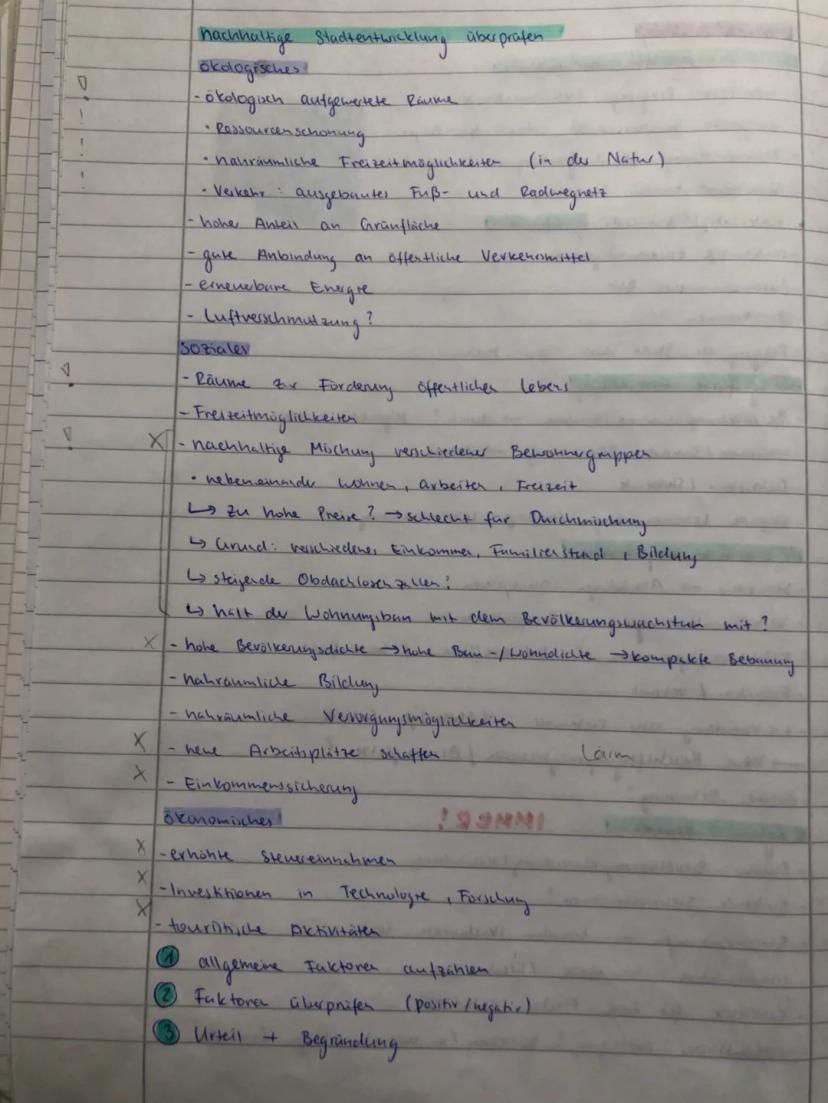 nachhaltige Stadtentwicklung überprüfen
ökologisches!
- ökologisch aufgewertete Räume
• Ressourcenschonung
• nahräumliche Freizeitmöglichkeiten (in der Natur)
• Verkehr: ausgebautes Fuß- und Radwegnetz
- hoher Anteil an Grünfläche
- gute Anbindung an öffentliche Verkehrsmittel
- erneuerbare Energie
- Luftverschmutzung?
soziales
- Räume zur Förderung öffentlichen Lebens
- Freizeitmöglichkeiten
X - nachhaltige Mischung verschiedener Bewohnergruppen
• nebeneinander wohnen, arbeiten, Freizeit
↳ zu hohe Preise? → schlecht für Durchmischung
↳ Grund: verschiedenes Einkommen, Familienstand, Bildung
↳ steigende Obdachlosenzahlen?
↳ hält der Wohnungsbau mit dem Bevölkerungswachstum mit?
X - hohe Bevölkerungsdichte → hohe Bau-/Wohndichte → kompakte Bebauung
- nahräumliche Bildung
- nahräumliche Versorgungsmöglichkeiten
X - neue Arbeitsplätze schaffen Lärm
X - Einkommenssicherung
ökonomisches! IMMER!
X - erhöhte Steuereinnahmen
X - Investitionen in Technologie, Forschung
X - touristische Aktivitäten
1 allgemeine Faktoren aufzählen
2 Faktoren überprüfen (positiv/negativ)
3 Urteil + Begründung